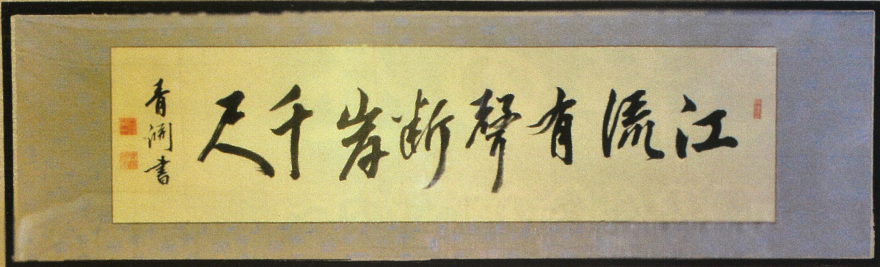 江流有聲斷岸千尺
青澗書